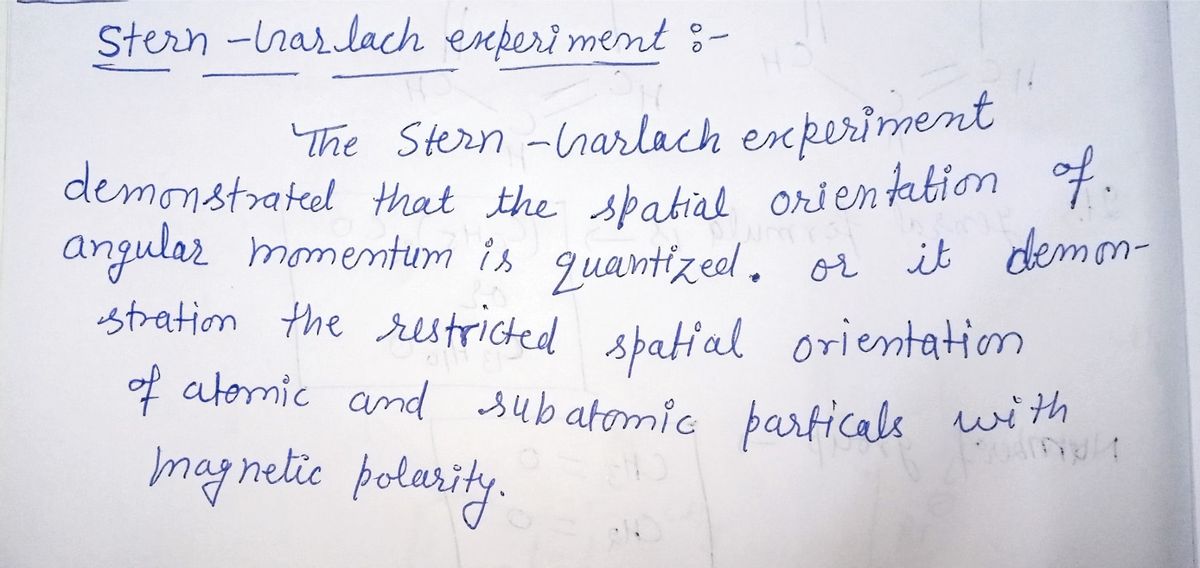 Stern - Garlach experiment :-
The Stern - Garlach experiment
demonstrated that the spatial orientation of
angular momentum is quantized. or it demon-
stration the restricted spatial orientation
of atomic and subatomic particals with
magnetic polarity.